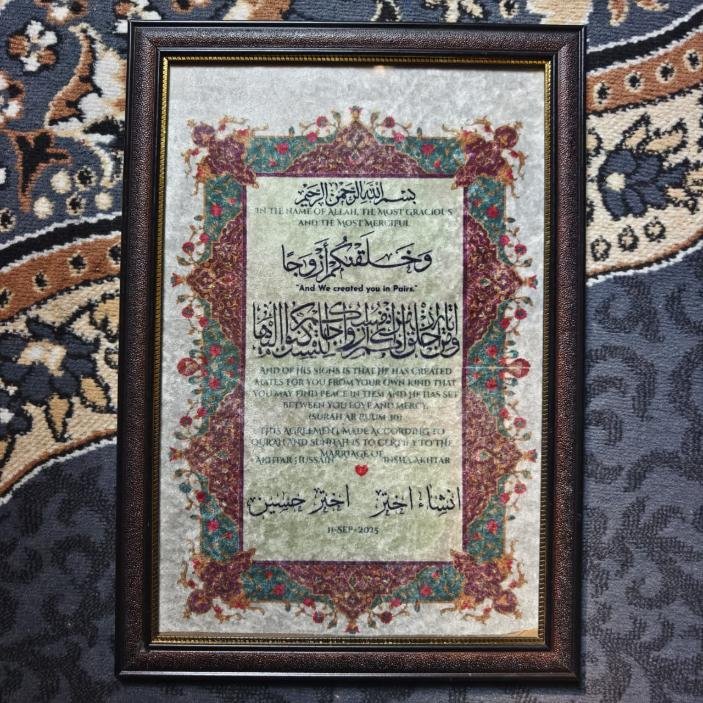 بسم الله الرحمن الرحيم
IN THE NAME OF ALLAH, THE MOST GRACIOUS
AND THE MOST MERCIFUL
وَخَلَقْنَٰكُمْ أَزْوَٰجًا
"And We created you in Pairs."
AND OF HIS SIGNS IS THAT HE HAS CREATED
MATES FOR YOU FROM YOUR OWN KIND THAT
YOU MAY FIND PEACE IN THEM AND HE HAS SET
BETWEEN YOU LOVE AND MERCY.
THIS AGREEMENT MADE ACCORDING TO
QURAN AND SUNNAH IS TO CERTIFY TO THE
MARRIAGE OF
AKHTAR HUSSAIN INSHA AKHTAR
انشاء اختر اختر حسین
11-SEP-2025